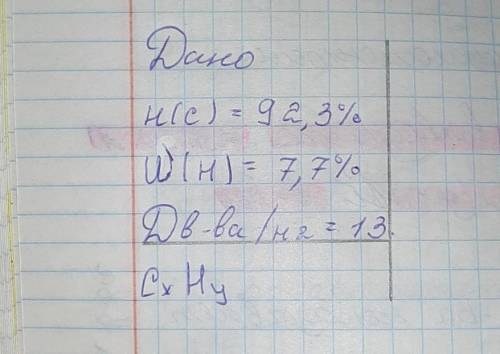 Дано
н(с) = 92,3%
W(н) = 7,7%
Дв-ва/н2 = 13.
CxHy